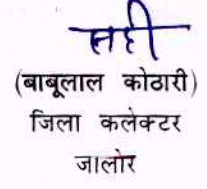 सही
(बाबूलाल कोठारी)
जिला कलेक्टर
जालोर